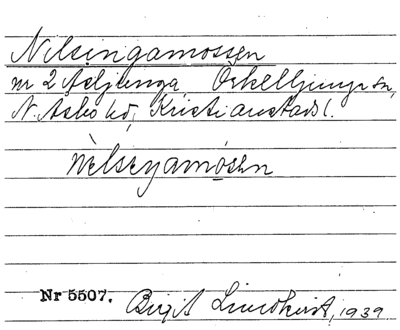 Nilsingamossen
nr 2 Åsljunga, Örkelljunga sn,
N. Åsbo hd, Kristianstads l.
nèlseŋamósen
Nr 5507. Birgit Lindkvist, 1939